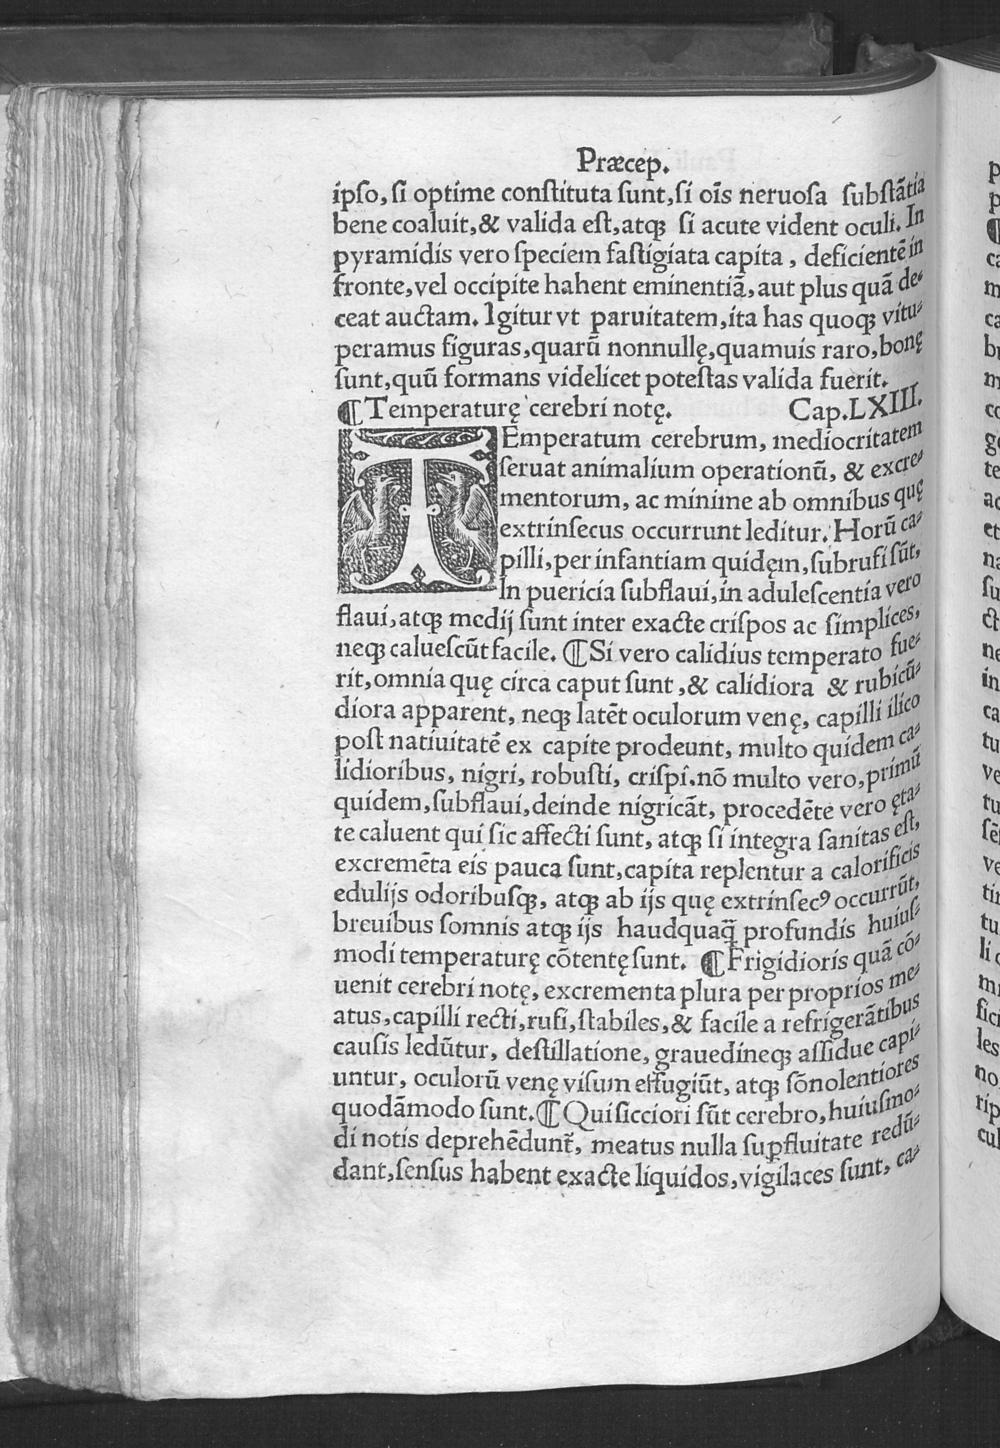 Præcep.
ipſo, ſi optime conſtituta ſunt, ſi oı̄s neruoſa ſubſtātia
bene coaluit, & valida eſt, atqꝫ ſi acute vident oculi. In
pyramidis vero ſpeciem faſtigiata capita, deficientē in
fronte, vel occipite hahent eminentiā, aut plus quā de⸗
ceat auctam. Igitur vt paruitatem, ita has quoqꝫ vitu⸗
peramus figuras, quarū nonnullę, quamuis raro, bonę
ſunt, quū formans videlicet poteſtas valida fuerit.
¶ Temperaturę cerebri notę. Cap. LXIII.
TEmperatum cerebrum, mediocritatem
ſeruat animalium operationū, & excre⸗
mentorum, ac minime ab omnibus quę
extrinſecus occurrunt leditur. Horū ca⸗
pilli, per infantiam quidęm, ſubrufi ſūt,
In puericia ſubflaui, in aduleſcentia vero
flaui, atqꝫ medij ſunt inter exacte criſpos ac ſimplices,
neqꝫ calueſcūt facile. ¶ Si vero calidius temperato fue⸗
rit, omnia quę circa caput ſunt, & calidiora & rubicū⸗
diora apparent, neqꝫ latēt oculorum venę, capilli ilico
poſt natiuitatē ex capite prodeunt, multo quidem ca⸗
lidioribus, nigri, robuſti, criſpi. nō multo vero, primū
quidem, ſubflaui, deinde nigricāt, procedēte vero ęta⸗
te caluent qui ſic affecti ſunt, atqꝫ ſi integra ſanitas eſt,
excremēta eis pauca ſunt, capita replentur a calorificis
edulijs odoribuſqꝫ, atqꝫ ab ijs quę extrinſecꝰ occurrūt,
breuibus ſomnis atqꝫ ijs haudquaq̄ profundis huiuſ⸗
modi temperaturę cōtentę ſunt. ¶ Frigidioris quā cō⸗
uenit cerebri notę, excrementa plura per proprios me⸗
atus, capilli recti, rufi, ſtabiles, & facile a refrigerātibus
cauſis ledūtur, deſtillatione, grauedineqꝫ aſſidue capi⸗
untur, oculorū venę viſum effugiūt, atqꝫ ſōnolentiores
quodāmodo ſunt. ¶ Qui ſicciori ſūt cerebro, huiuſmo⸗
di notis deprehēdunt᷑, meatus nulla ſuꝑfluitate redū⸗
dant, ſenſus habent exacte liquidos, vigilaces ſunt, ca⸗